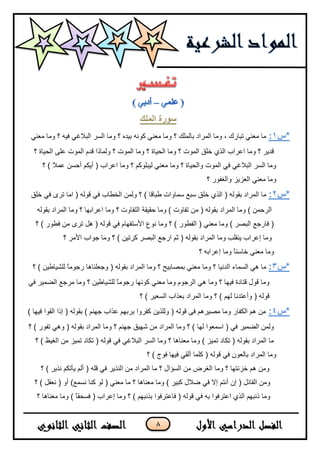 المواد الشرعية
تفسير
( علمي – أدبي )
سورة الملك
*س١: ما معني تبارك ، وما المراد بالملك ؟ وما معني كونه بيده ؟ وما السر البلاغي فيه ؟ وما معني
قدير ؟ وما اعراب الذي خلق الموت ؟ وما الحياة ؟ وما الموت ؟ ولماذا قدم الموت على الحياة ؟
وما السر البلاغي في الموت والحياة ؟ وما معني ليبلوكم ؟ وما اعراب ( أيكم أحسن عملا ) ؟
وما معني العزيز والغفور ؟
*س٢: ما المراد بقوله ( الذي خلق سبع سماوات طباقا ) ؟ ولمن الخطاب في قوله ( اما ترى في خلق
الرحمن ) وما المراد بقوله ( من تفاوت ) وما حقيقة التفاوت ؟ وما اعرابها ؟ وما المراد بقوله
( فارجع البصر ) وما معني ( الفطور ) ؟ وما نوع الاستفهام في قوله ( هل ترى من فطور ) ؟
وما إعراب ينقلب وما المراد بقوله ( ثم ارجع البصر كرتين ) ؟ وما جواب الأمر ؟
وما معني خاسئاً وما إعرابه ؟
*س٣: ما هي السماء الدنيا ؟ وما معني بمصابيح ؟ وما المراد بقوله ( وجعلناها رجوماً للشياطين ) ؟
وما قول قتادة فيها ؟ وما هي الرجوم وما معني كونها رجوماً للشياطين ؟ وما مرجع الضمير في
قوله ( وأعتدنا لهم ) ؟ وما المراد بعذاب السعير ) ؟
*س٤: من هم الكفار وما مصيرهم في قوله ( وللذين كفروا بربهم عذاب جهنم ) بقوله ( إذا القوا فيها )
ولمن الضمير في ( اسمعوا لها ) ؟ وما المراد من شهيق جهنم ؟ وما المراد بقوله ( وهي تفور ) ؟
ما المراد بقوله ( تكاد تميز ) وما معناها ؟ وما السر البلاغي في قوله ( تكاد تميز من الغيظ ) ؟
وما المراد بالعون في قوله ( كلما ألقي فيها فوج ) ؟
ومن هم خزنتها ؟ وما الغرض من السؤال ؟ ما المراد من النذير في قله ( ألم يأتكم نذير ) ؟
ومن القائل ( إن أنتم إلا في ضلال كبير ) وما معناها ؟ ما معني ( لو كنا نسمع ) أو ( نعقل ) ؟
وما ذنبهم الذي اعترفوا به في قوله ( فاعترفوا بذنبهم ) ؟ وما إعراب ( فسحقاً ) وما معناها ؟
الفصل الدراسي الأول
٨
الصف الثاني الثانوي